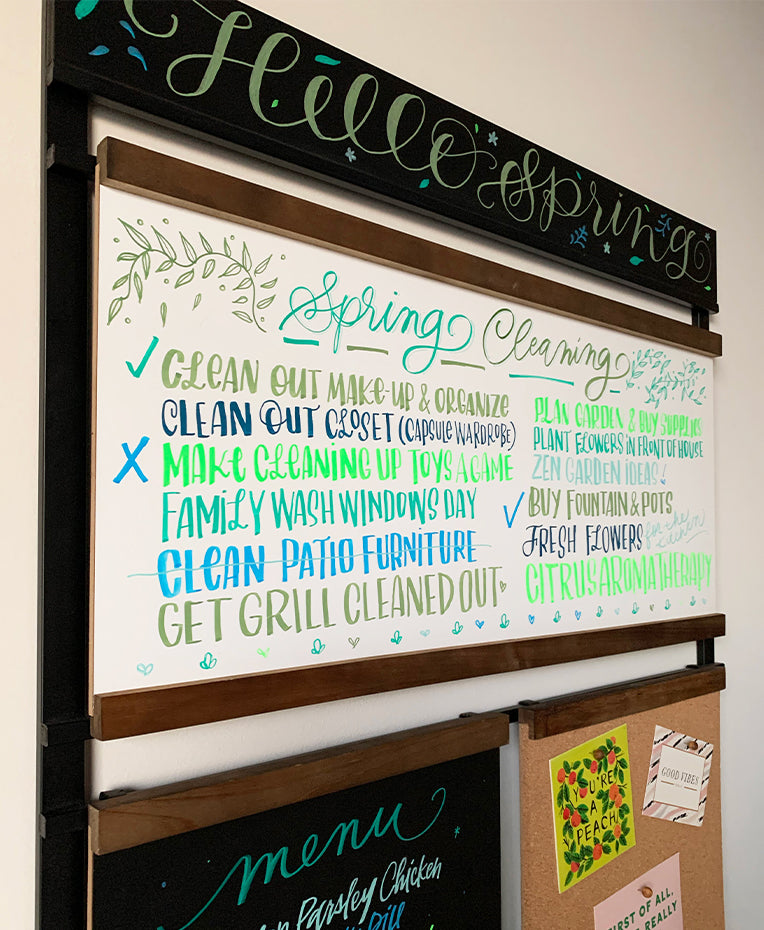 Hello Spring
Spring Cleaning
✓ CLEAN OUT MAKE-UP & ORGANIZE
CLEAN OUT CLOSET (CAPSULE WARDROBE)
X MAKE CLEANING UP TOYS A GAME
FAMILY WASH WINDOWS DAY
CLEAN PATIO FURNITURE
GET GRILL CLEANED OUT
PLAN GARDEN & BUY SUPPLIES
PLANT FLOWERS IN FRONT OF HOUSE
ZEN GARDEN IDEAS!
✓ BUY FOUNTAIN & POTS
FRESH FLOWERS for the
CITRUS AROMATHERAPY
menu
Parsley Chicken
Dill
YOU'RE
A
PEACH
GOOD VIBES
FIRST OF ALL,
REALLY